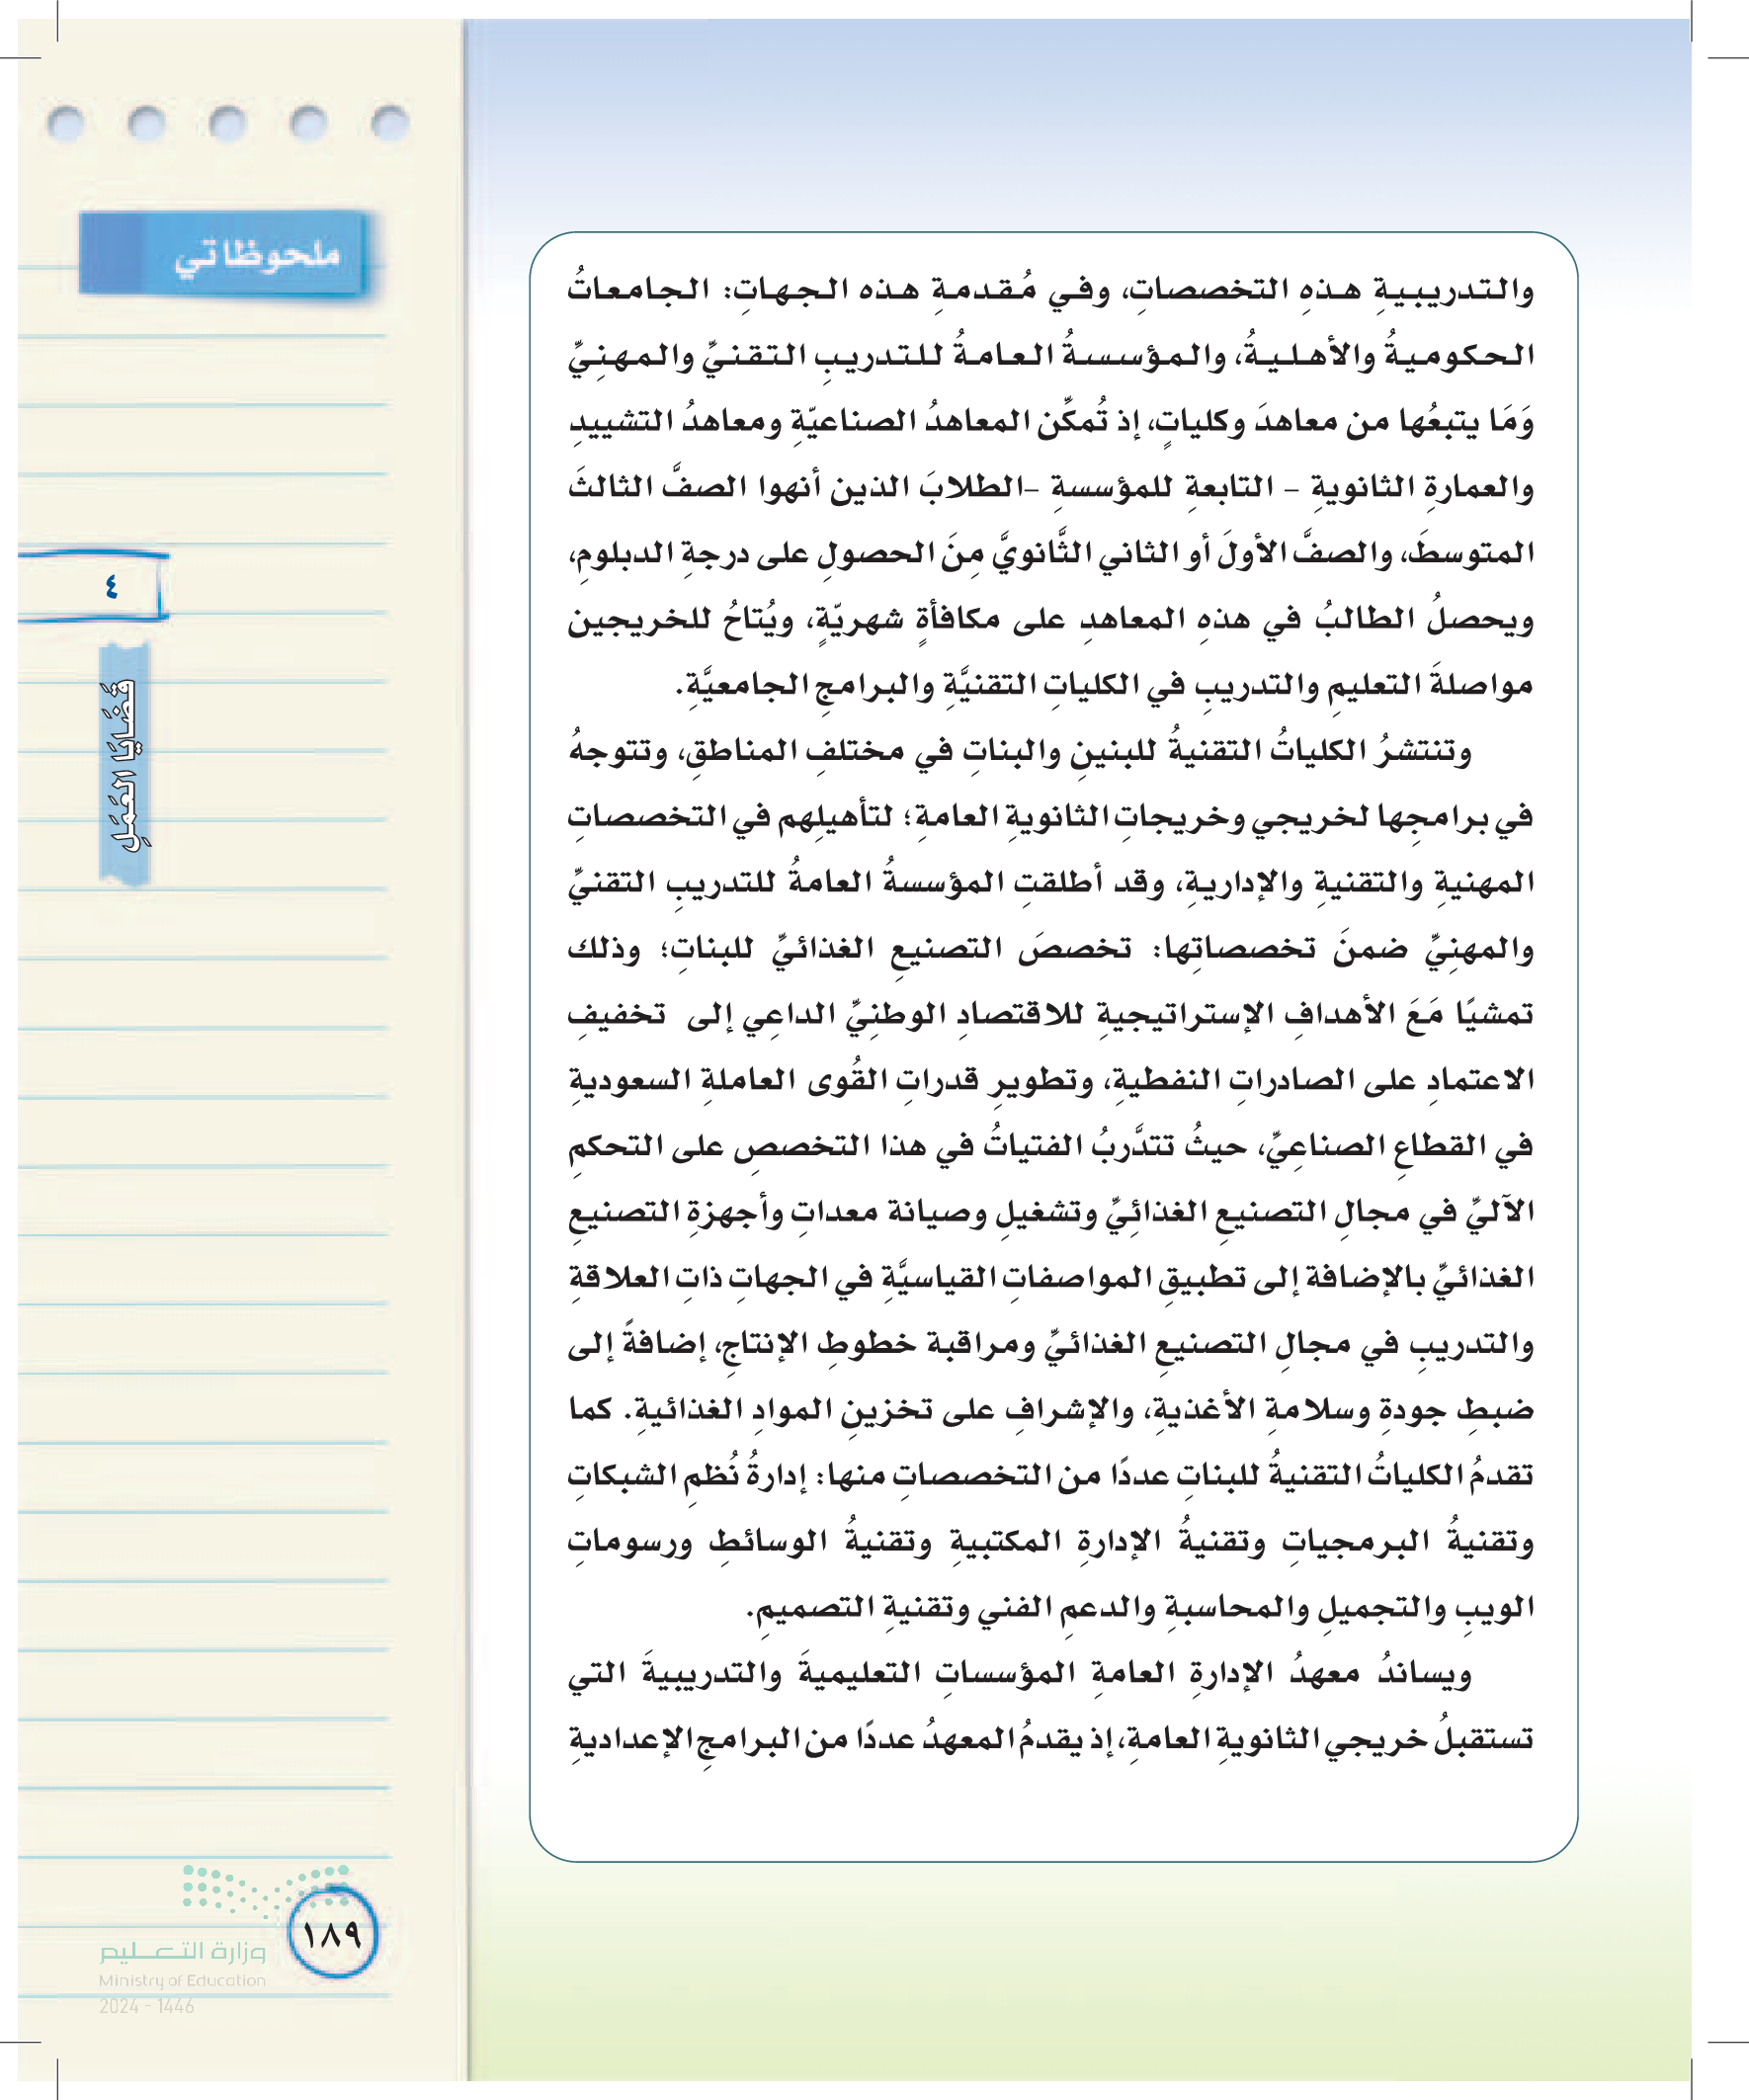 والتدريبيةِ هذهِ التخصصاتِ، وفي مُقدمةِ هذه الجهاتِ: الجامعاتُ
الحكوميةُ والأهليةُ، والمؤسسةُ العامةُ للتدريبِ التقنيِّ والمهنِيِّ
وَمَا يتبعُها من معاهدَ وكلياتٍ، إذ تُمكِّن المعاهدُ الصناعيّةِ ومعاهدُ التشييدِ
والعمارةِ الثانويةِ – التابعةِ للمؤسسةِ –الطلابَ الذين أنهوا الصفَّ الثالثَ
المتوسطَ، والصفَّ الأولَ أو الثاني الثَّانويَّ مِنَ الحصولِ على درجةِ الدبلومِ،
ويحصلُ الطالبُ في هذهِ المعاهدِ على مكافأةٍ شهريّةٍ، ويُتاحُ للخريجين
مواصلةَ التعليمِ والتدريبِ في الكلياتِ التقنيَّةِ والبرامجِ الجامعيَّةِ.
وتنتشرُ الكلياتُ التقنيةُ للبنينِ والبناتِ في مختلفِ المناطقِ، وتتوجهُ
في برامجِها لخريجي وخريجاتِ الثانويةِ العامةِ؛ لتأهيلِهم في التخصصاتِ
المهنيةِ والتقنيةِ والإداريةِ، وقد أطلقتِ المؤسسةُ العامةُ للتدريبِ التقنيِّ
والمهنِيِّ ضمنَ تخصصاتِها: تخصصَ التصنيعِ الغذائيِّ للبناتِ؛ وذلك
تمشيًا مَعَ الأهدافِ الإستراتيجيةِ للاقتصادِ الوطنِيِّ الداعِي إلى تخفيفِ
الاعتمادِ على الصادراتِ النفطيةِ، وتطويرِ قدراتِ القُوى العاملةِ السعوديةِ
في القطاعِ الصناعِيِّ، حيثُ تتدَّربُ الفتياتُ في هذا التخصصِ على التحكمِ
الآليِّ في مجالِ التصنيعِ الغذائِيِّ وتشغيلِ وصيانة معداتِ وأجهزةِ التصنيعِ
الغذائيِّ بالإضافة إلى تطبيقِ المواصفاتِ القياسيَّةِ في الجهاتِ ذاتِ العلاقةِ
والتدريبِ في مجالِ التصنيعِ الغذائيِّ ومراقبة خطوطِ الإنتاجِ، إضافةً إلى
ضبطِ جودةِ وسلامةِ الأغذيةِ، والإشرافِ على تخزينِ الموادِ الغذائيةِ. كما
تقدمُ الكلياتُ التقنيةُ للبناتِ عددًا من التخصصاتِ منها: إدارةُ نُظمِ الشبكاتِ
وتقنيةُ البرمجياتِ وتقنيةُ الإدارةِ المكتبيةِ وتقنيةُ الوسائطِ ورسوماتِ
الويبِ والتجميلِ والمحاسبةِ والدعمِ الفني وتقنيةِ التصميمِ.
ويساندُ معهدُ الإدارةِ العامةِ المؤسساتِ التعليميةَ والتدريبيةَ التي
تستقبلُ خريجي الثانويةِ العامةِ، إذ يقدمُ المعهدُ عددًا من البرامجِ الإعداديةِ
ملحوظاتي
٤
قَضَايَا العَمَلِ
١٨٩
وزارة التعليم
Ministry of Education
2024 - 1446